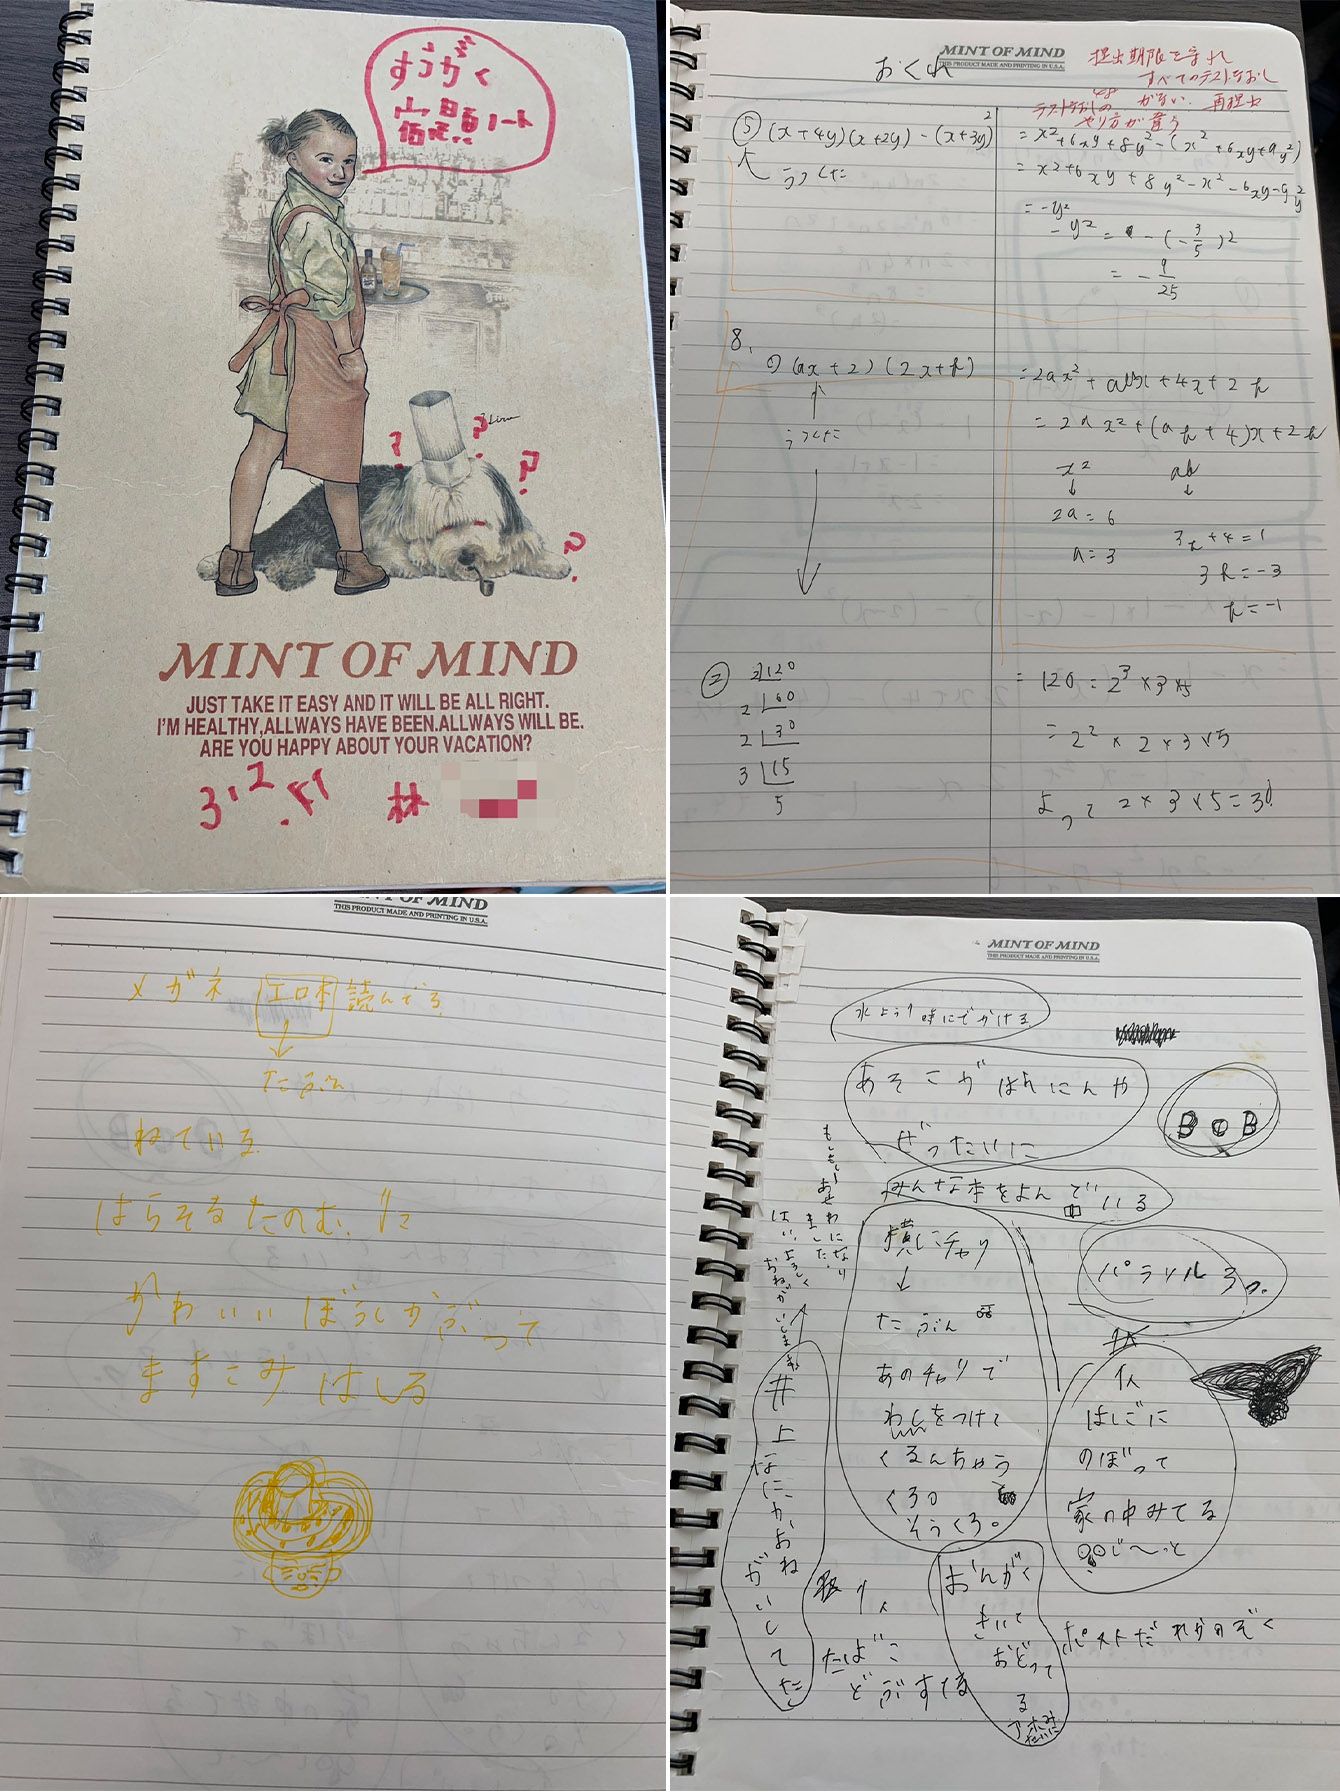 すうがく
宿題ノート
MINT OF MIND
JUST TAKE IT EASY AND IT WILL BE ALL RIGHT.
I'M HEALTHY,ALLWAYS HAVE BEEN.ALLWAYS WILL BE.
ARE YOU HAPPY ABOUT YOUR VACATION?
林
MINT OF MIND
THIS PRODUCT MADE AND PRINTING IN U.S.A.
おくれ
提出期限で
すべてのテストなおし
がない 再提出
テストなおしの
やり方が違う
⑤ (x+4y)(x+2y)-(x+3y)²
うつした
=x²+6xy+8y²-(x²+6xy+9y²)
=x²+6xy+8y²-x²-6xy-9y²
=-y²
-y²= -(-3/5)²
=-9/25
8.
(ax+2)(2x+b)
=2ax²+abx+4x+2b
=2ax²+(ab+4)x+2b
x²
ab
↓
↓
2a=6
a=3
3b+4=1
3b=-3
b=-1
②
2 120
2 60
2 30
3 15
5
=120=2³×3×5
=2²×2×3×5
よって 2×3×5=30
MINT OF MIND
THIS PRODUCT MADE AND PRINTING IN U.S.A.
メガネ エロ本 読んでる
↓
たぶん
ねている
はらそるたのむ。
かわいいぼうしかぶって
ますこみはしる
MINT OF MIND
THIS PRODUCT MADE AND PRINTING IN U.S.A.
あそこがはんにんや
ぜったいに
BOB
みんな本をよんでいる
横にチャリ
↓
たぶん
あのチャリで
わしをつけて
くるんちゃう
くるの
そうくろ。
パラソル3つ。
1人
はしごに
のぼって
家の中みてる
じ〜っと
井上なにかおねがいしてた
1人
たばこ
どぶすてる
おんがく
きいて
おどって
る
ポストだれかのぞく